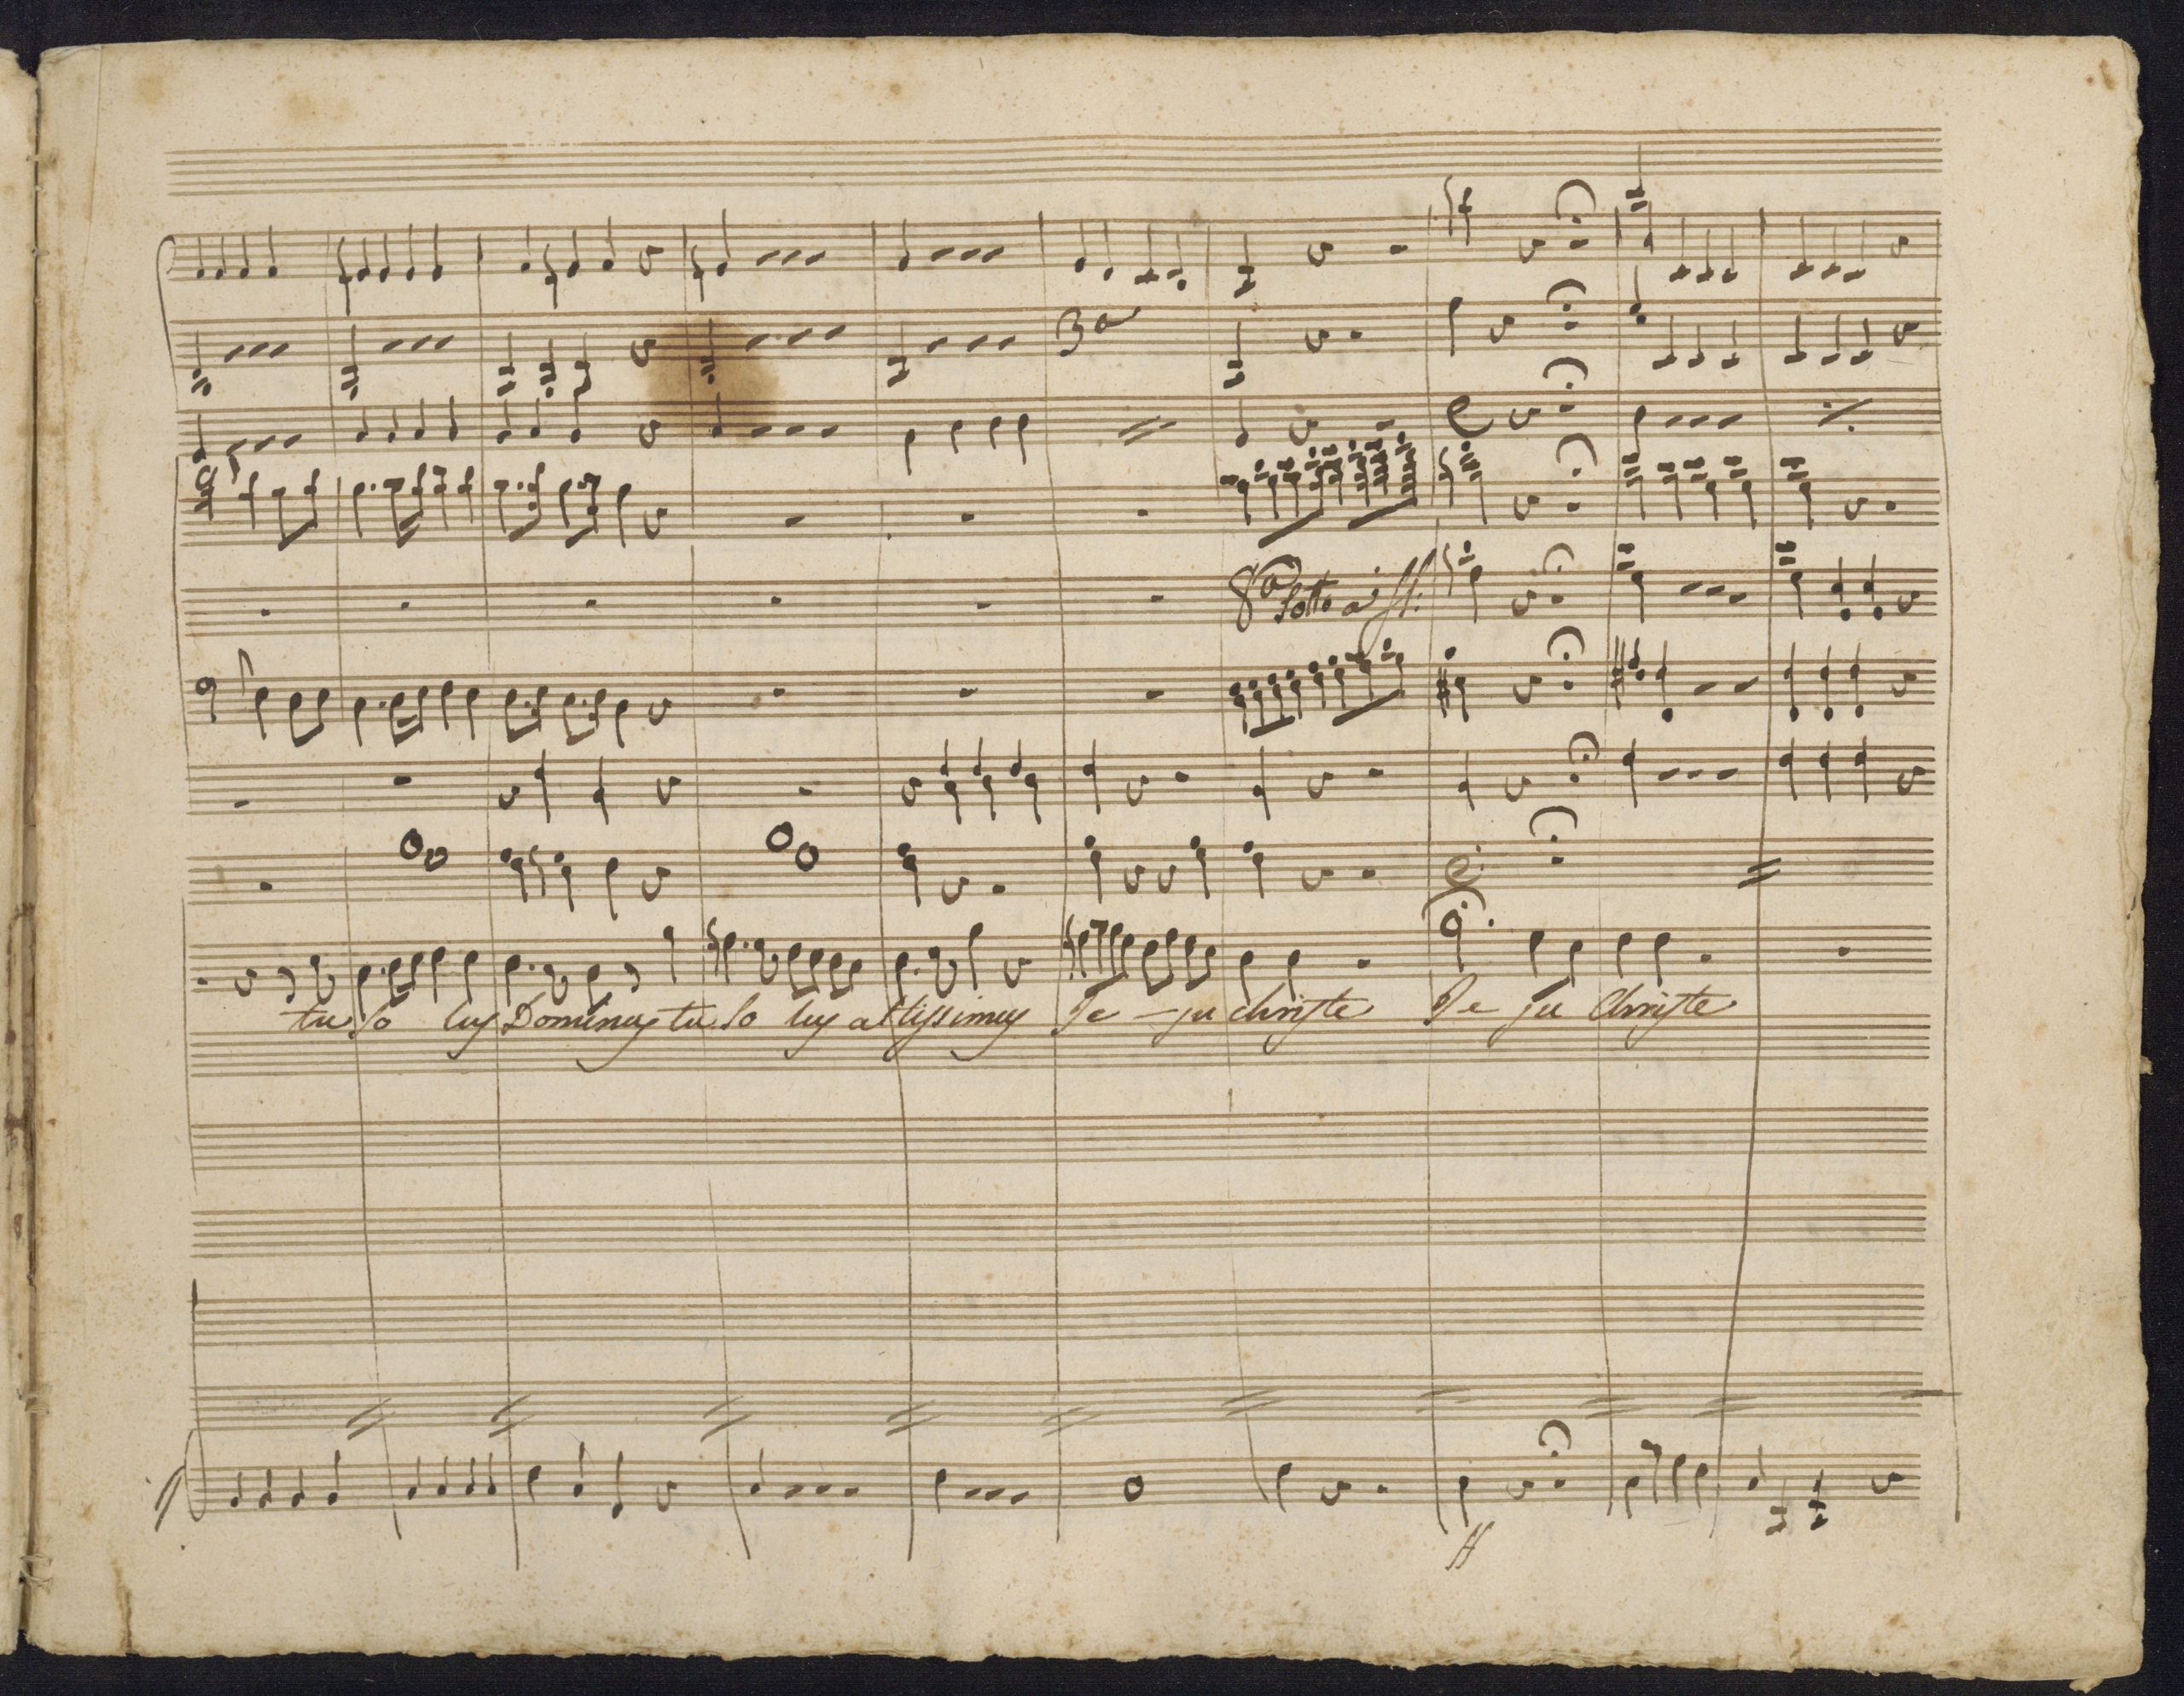 3a
8a Sotto a ff:
tu So lus Dominus tu So lus altissimus Je - su christe Je su Christe
ff